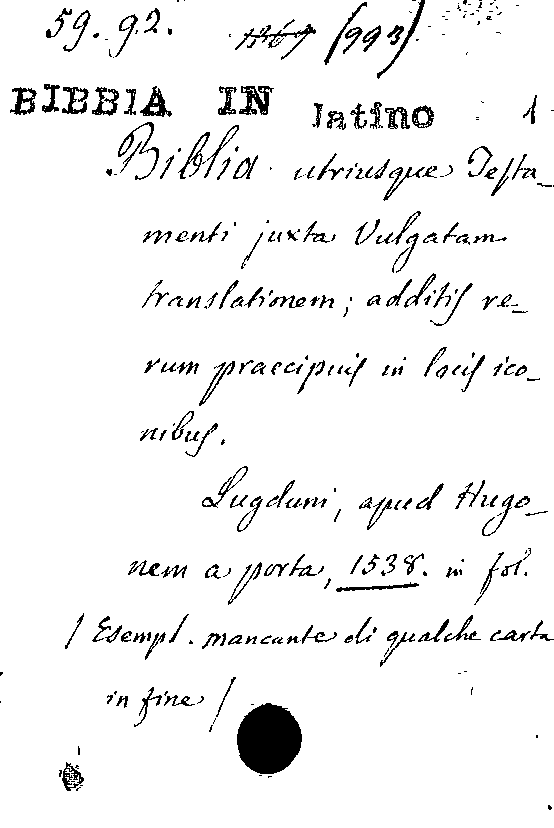 59. g2. 1369 (993)
BIBBIA IN latino 1
Biblia utriusque Testa_
menti juxta Vulgatam
translationem; additis re_
rum praecipuis in locis ico_
nibus.
Lugduni, apud Hugo_
nem a porta, 1538. in fol.
/ Esempl. mancante di qualche carta
in fine /